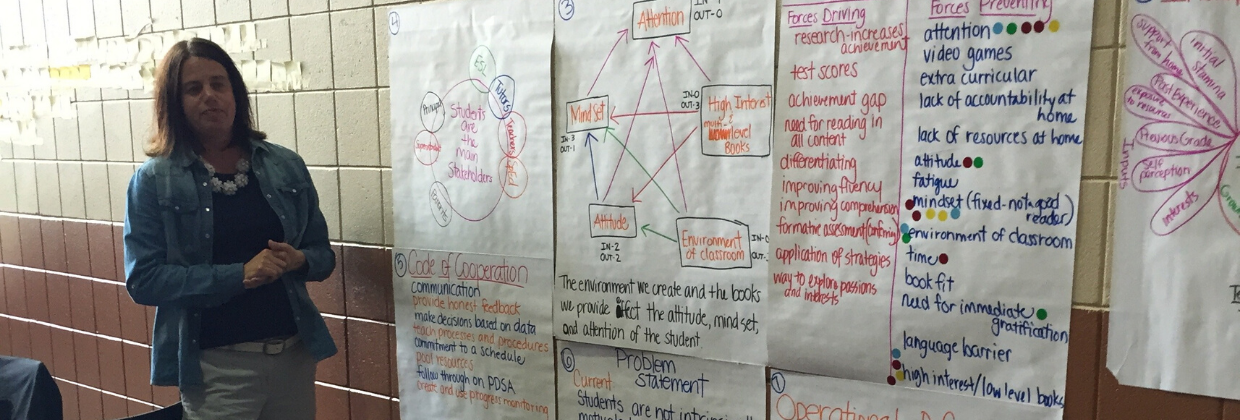 4
ESL
Tutors
Principal
Students
are
the
main
Stakeholders
Teachers
Parents
3
Attention
IN-
OUT-0
Mind Set
IN-3
OUT-1
IN-0
OUT-3
High Interest
level
Books
Attitude
IN-2
OUT-2
Environment
of classroom
IN-0
OUT-
The environment we create and the books
we provide affect the attitude, mind set,
and attention of the student.
5
Code of Cooperation
communication
provide honest feedback
make decisions based on data
teach processes and procedures
commitment to a schedule
pool resources
follow through on PDSA
create and use progress monitoring
6
Problem
Statement
Current
Students are not
Forces Driving
research-increases
achievement
test scores
achievement gap
need for reading in
all content
differentiating
improving fluency
improving comprehension
formative assessment
application of strategies
way to explore passions
and interests
Forces Preventing
attention
video games
extra curricular
lack of accountability at
home
lack of resources at home
attitude
fatigue
mindset (fixed-not a good
reader)
environment of classroom
time
book fit
need for immediate
gratification
language barrier
high interest/low level books
7
Operational
support
from home
initial
stamina
Past Experience
exposure
to resources
Previous Grade
self
perception
interests
Inputs